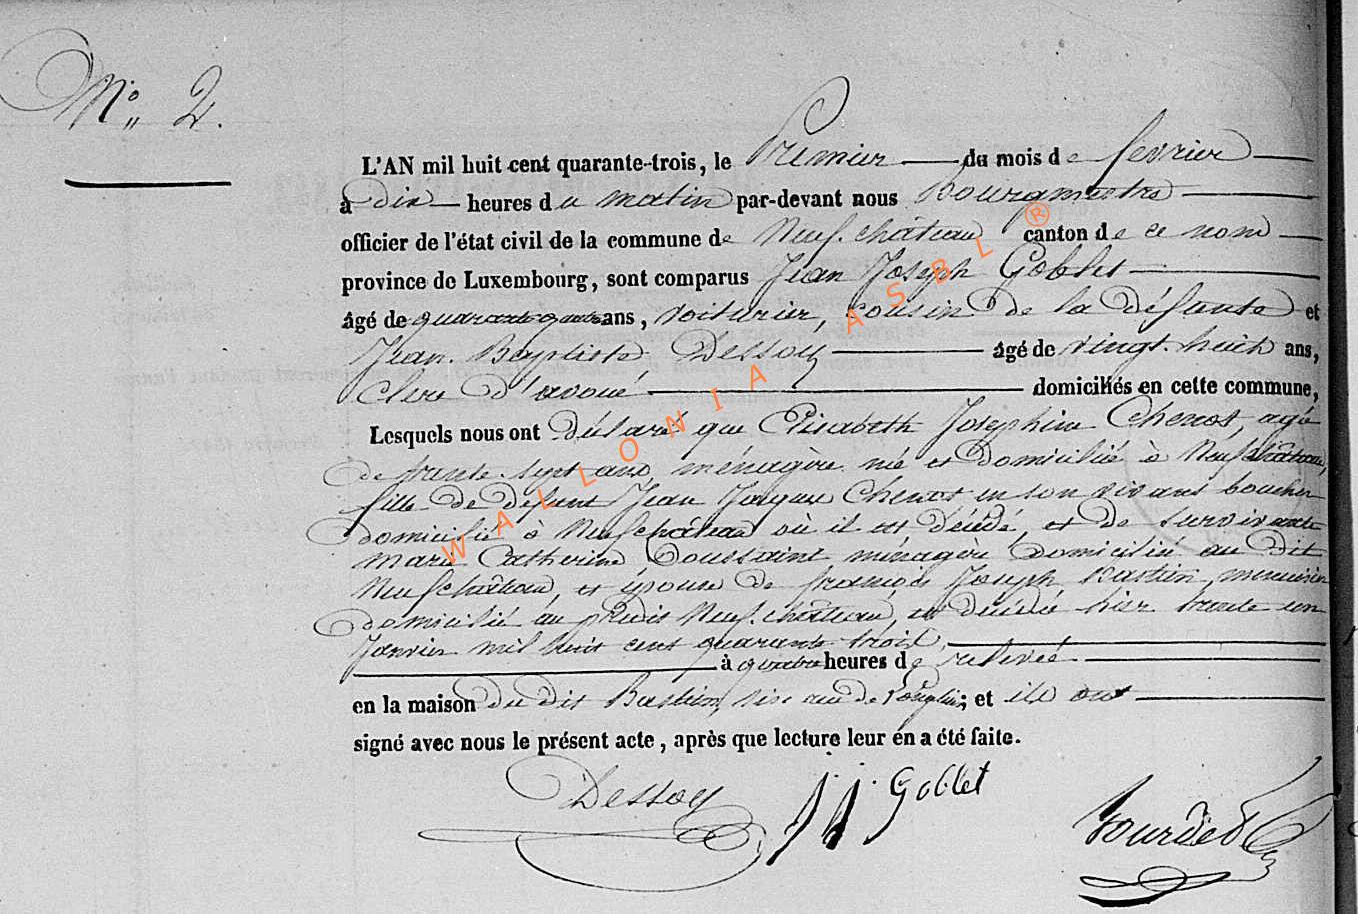 N° 2.
L'AN mil huit cent quarante-trois, le Premier du mois de fevrier
à dix heures du matin par-devant nous Bourgmestre
officier de l'état civil de la commune de Neufchâteau canton de ce nom
province de Luxembourg, sont comparus Jean Joseph Goblet
âgé de quarante quatre ans, voiturier, cousin de la défunte et
Jean Baptiste Dessoy âgé de vingt huit ans,
Clerc d'avoué domiciliés en cette commune,
Lesquels nous ont déclaré que Elisabeth Josephine Chenot, agé
de trente sept ans, ménagère né et domicilié à Neufchâteau,
fille de defunt Jean Jacques Chenot en son vivant boucher
domicilié à Neufchâteau où il est décédé, et de survivante
Marie Catherine Toussaint ménagère domicilié au dit
Neufchâteau, et épouse de françois Joseph Bastien, menuisier
domicilié au predit Neufchâteau, est decédé hier trente un
Janvier mil huit cent quarante trois,
à quatre heures de relevée
en la maison du dit Bastien, sise rue de; et ils ont
signé avec nous le présent acte, après que lecture leur en a été faite.
Dessoy J J Goblet
WALLONIA ASBL ®